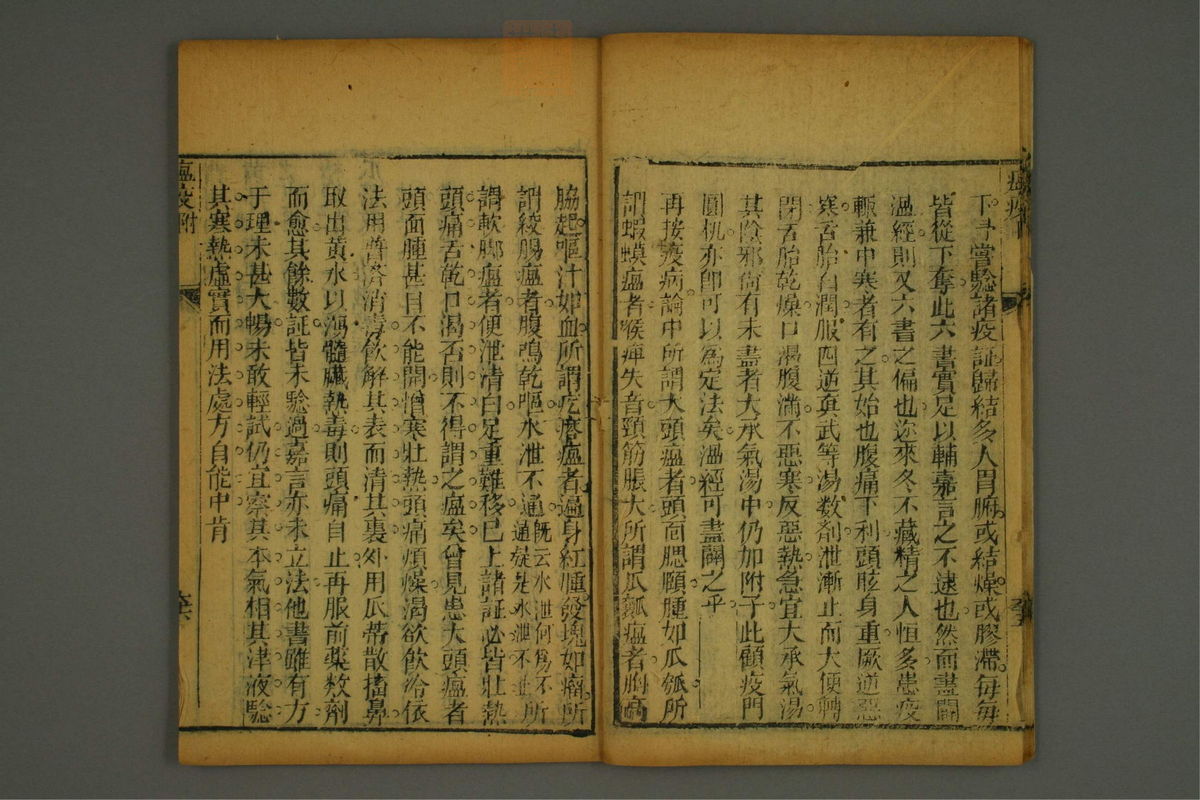 下予嘗騐諸疫証歸結多入胃腑或結燥或膠滯每每
皆從下奪此六書實足以輔嘉言之不逮也然而盡闢
溫經則又六書之偏也迩來冬不藏精之人恒多患疫
輙兼中寒者有之其始也腹痛下利頭眩身重厥逆惡
寒舌胎白潤服四逆真武等湯数劑泄漸止而大便轉
閉舌胎乾燥口渴腹滿不惡寒反惡熱急宜大承氣湯
其陰邪尚有未盡者大承氣湯中仍加附子此顧疫門
圓机亦卽可以為定法矣溫經可盡闢之乎
再按疫病論中所謂大頭瘟者頭面腮頤腫如瓜瓠所
謂蝦蟆瘟者喉痺失音頸筋脹大所謂瓜瓤瘟者胸高
脇起嘔汁如血所謂疙瘩瘟者遍身紅腫發塊如瘤所
謂絞腸瘟者腹鳴乾嘔水泄不通旣云水泄何爲不通疑是水泄不止所
謂軟脚瘟者便泄清白足重難移已上諸証必皆壯熱
頭痛舌乾口渴否則不得謂之瘟矣曾見患大頭瘟者
頭面腫甚目不能開憎寒壯熱頭痛煩燥渴欲飲冷依
法用普濟消毒飲解其表而清其裏外用瓜蒂散搐鼻
取出黄水以瀉髓臟熱毒則頭痛自止再服前藥数劑
而愈其餘數証皆未騐過嘉言亦未立法他書雖有方
于理未甚大暢未敢輕試仍宜察其本氣相其津液騐
其寒熱虛實而用法處方自能中肯
瘟疫附